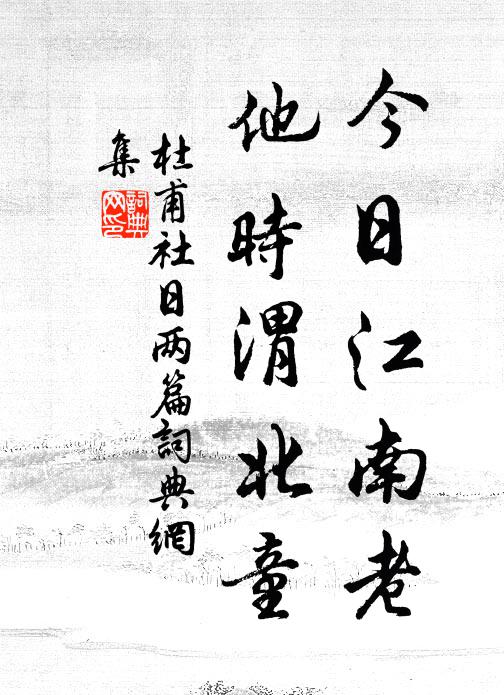 今日江南老
他時渭北童
杜甫社日两篇詞典網
集
詞典
网印